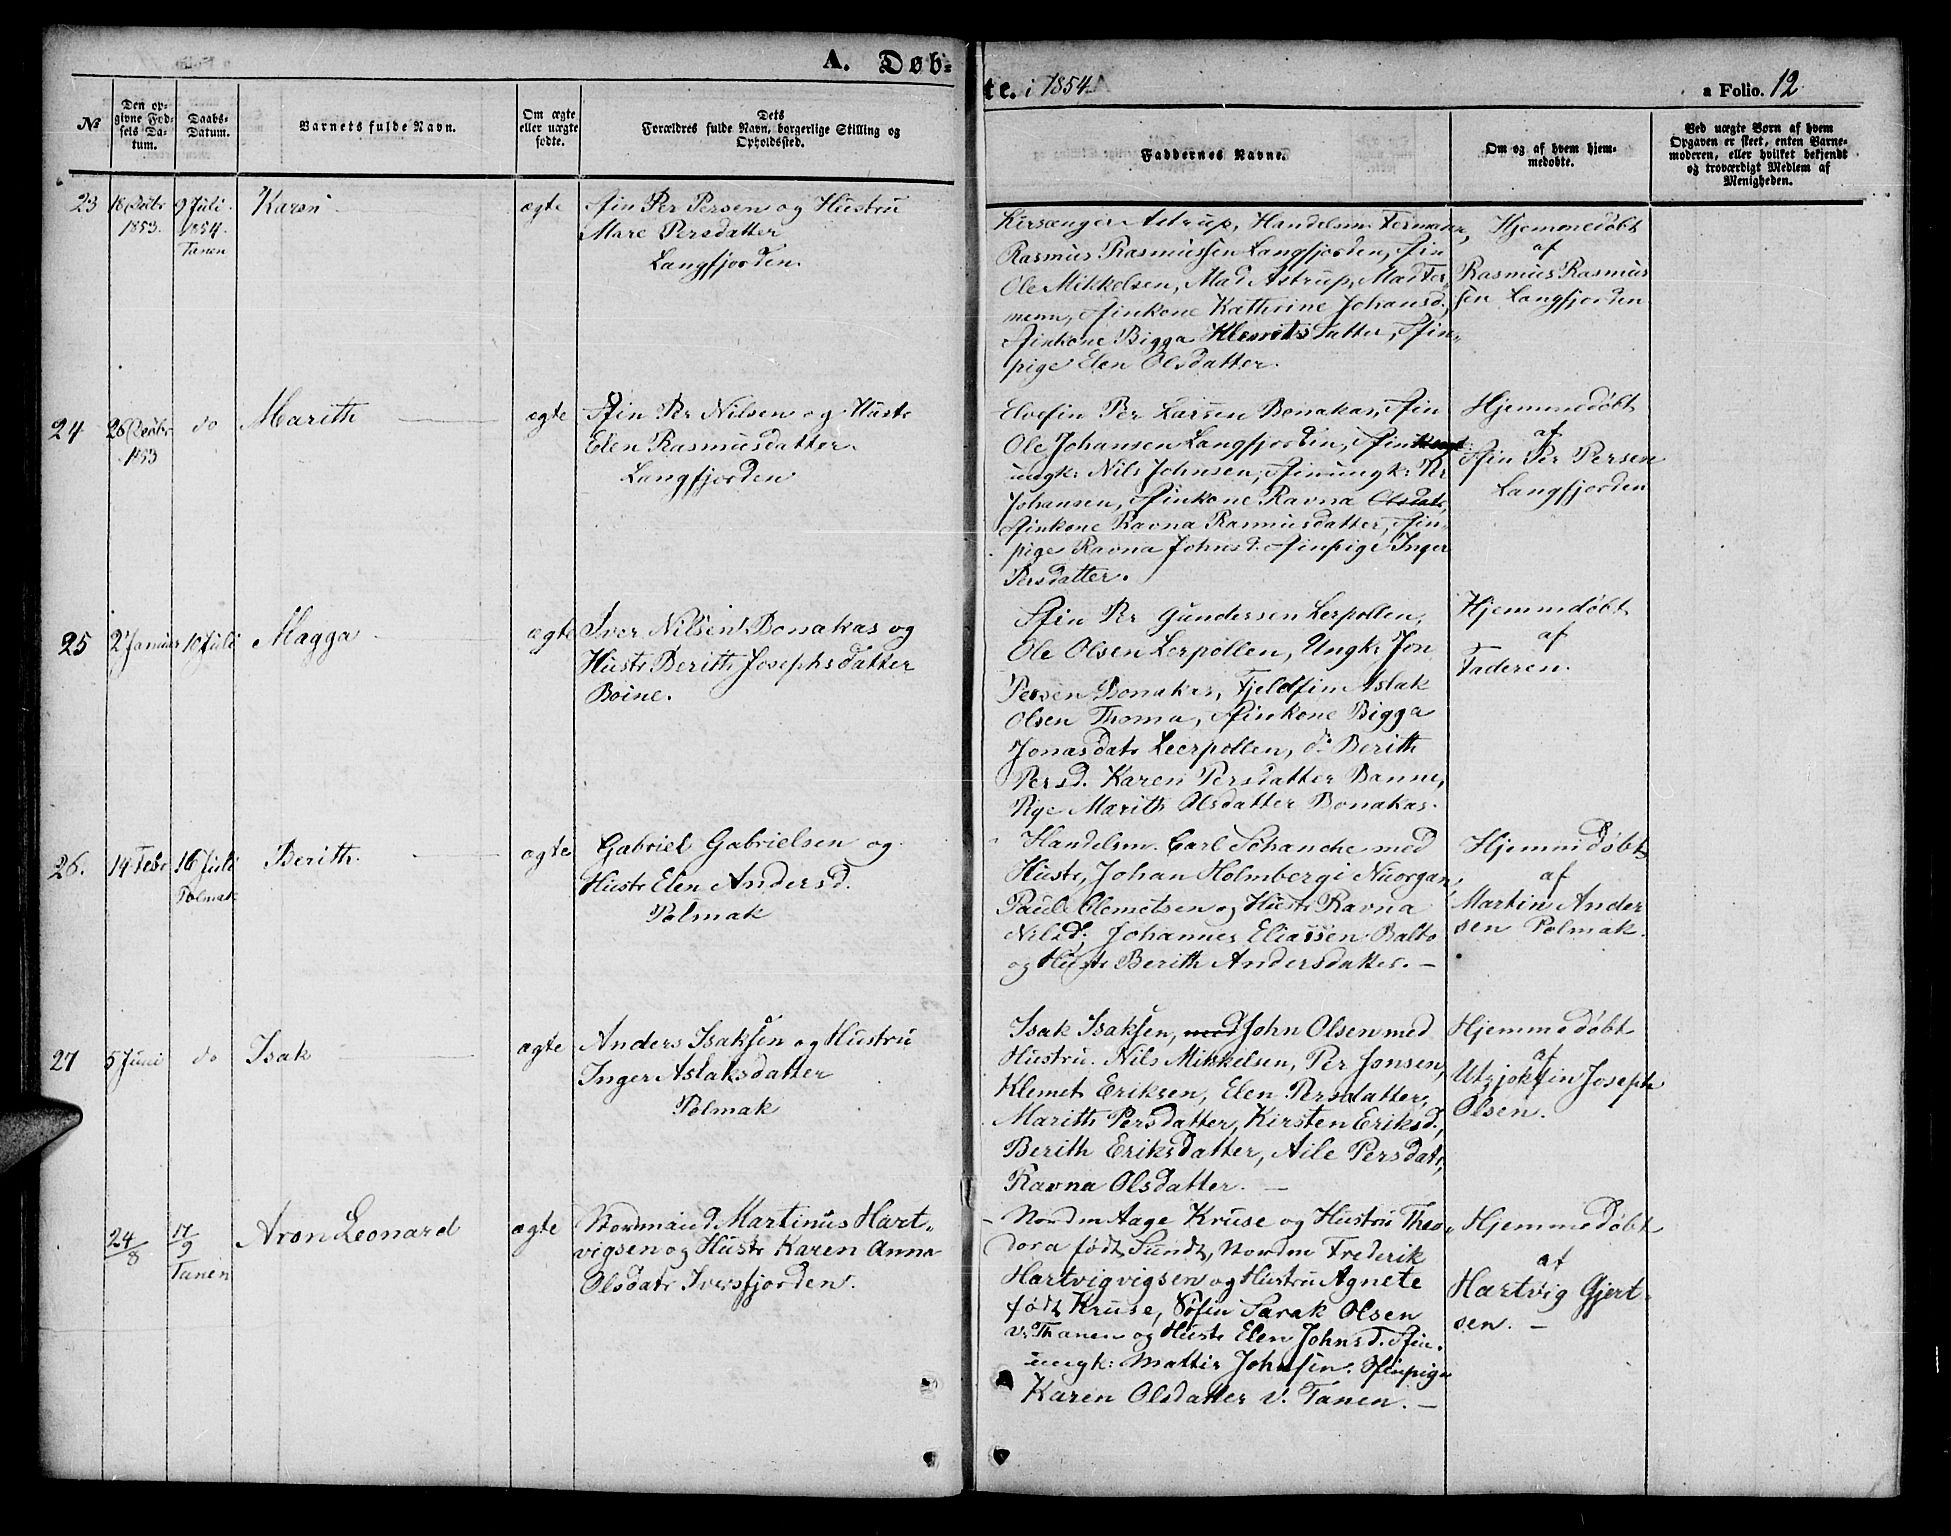 A. Døb-
te. i 1854.
a Folio. 12
No
Den op-
givne Fød-
sels Da-
tum.
Daabs-
Datum.
Barnets fulde Navn.
Om ægte
eller uægte
fødte.
Dets
Forældres fulde Navn, borgerlige Stilling og
Opholdssted.
Faddernes Navne.
Om og af hvem hjem-
medøbte.
Ved uægte Børn af hvem
Opgaven er skeet, enten Barne-
moderen, eller hvilket bekjendt
og troværdigt Medlem af
Menigheden.
23
1853.
9 Juli
1854.
Tanen
Karen
ægte
Sfin Per Persen og Hustru
Mare Persdatter
Langfjorden.
Kirsanger Astrup, Handelsm Fermann,
Rasmus Rasmussen Langfjorden, Sfin
Ole Mikkelsen, Mad Astrup, Mad Fer-
menn, Sfinkone Kathrine Johansd.,
Sfinkone Bigga Klemetsdatter, Sfin-
pige Elen Olsdatter.
Hjemmedøbt
af
Rasmus Rasmus
sen Langfjorden
24
1853
do
Marith
ægte
Sfin Per Nilsen og Hustr
Elen Rasmusdatter.
Langfjorden
Elvefin Per Larsen Bonakas, Sfin
Ole Johansen Langfjorden,
ungk: Nils Johnsen, Sfinungk: Per
Johansen, Sfinkone Ravna Olsdatr,
Sfinkone Ravna Rasmusdatter, Sfin-
pige Ravna Johnsd. Sfinpige Inger
Persdatter.
Hjemmedøbt
af
Sfin Per Persen
Langfjorden
25
2 Januar
10 Juli
Magga
ægte
Iver Nilsen Bonakas og
Hustr Berith Josephsdatter
Boine.
Sfin Per Gundersen Lerpollen,
Ole Olsen Lerpollen, Ungk: Jon
Persen Bonakas, Fjeldfin Aslak
Olsen Thoma, Sfinkone Bigga
Jonasdatr Leerpollen, do Berith
Persd. Karen Persdatter Banne,
Pige Marith Olsdatter Bonakas.
Hjemmedøbt
af
Faderen.
26.
14 Febr
16 Juli
Polmak
Berith.
ægte
Gabriel Gabrielsen og
Hustr Elen Andersd.
Polmak
Handelsm. Carl Schanche med
Hustr, Johan Holmberg i Nuorgan,
Paul Clemetsen og Hustr Ravna
Nilsd; Johannes Eliassen Balto
og Hustr Berith Andersdatter. —
Hjemmedøbt
af
Martin Ander
sen Polmak.
27
5 Juni
do
Isak
ægte
Anders Isaksen og Hustru
Inger Aslaksdatter
Polmak
Isak Isaksen, med John Olsen med
Hustru. Nils Mikkelsen, Per Jonsen,
Klemet Eriksen, Elen Persdatter,
Marith Persdatter, Kirsten Eriksd,
Berith Eriksdatter, Aile Persdatr,
Ravna Olsdatter. —
Hjemmedøbt
af
Utzjokfin Joseph
Olsen.
24/8
17/9
Tanen
Aron Leonard
ægte
Nordmand Martinus Hart-
vigsen og Hustr Karen Anna
Olsdatr Iversfjorden.
Nordm Aage Kruse og Hustru Theo-
dora født Sundt, Nordm Frederik
Hartvigvigsen og Hustru Agnete
født Kruse, Søfin Sarak Olsen
v. Thanen og Hustr Elen Johnsd. Sfin-
ungk: Mattis Johnsen. Sfinpige
Karen Olsdatter v. Tanen. —
Hjemmedøbt
af
Hartvig Gjert-
sen. —